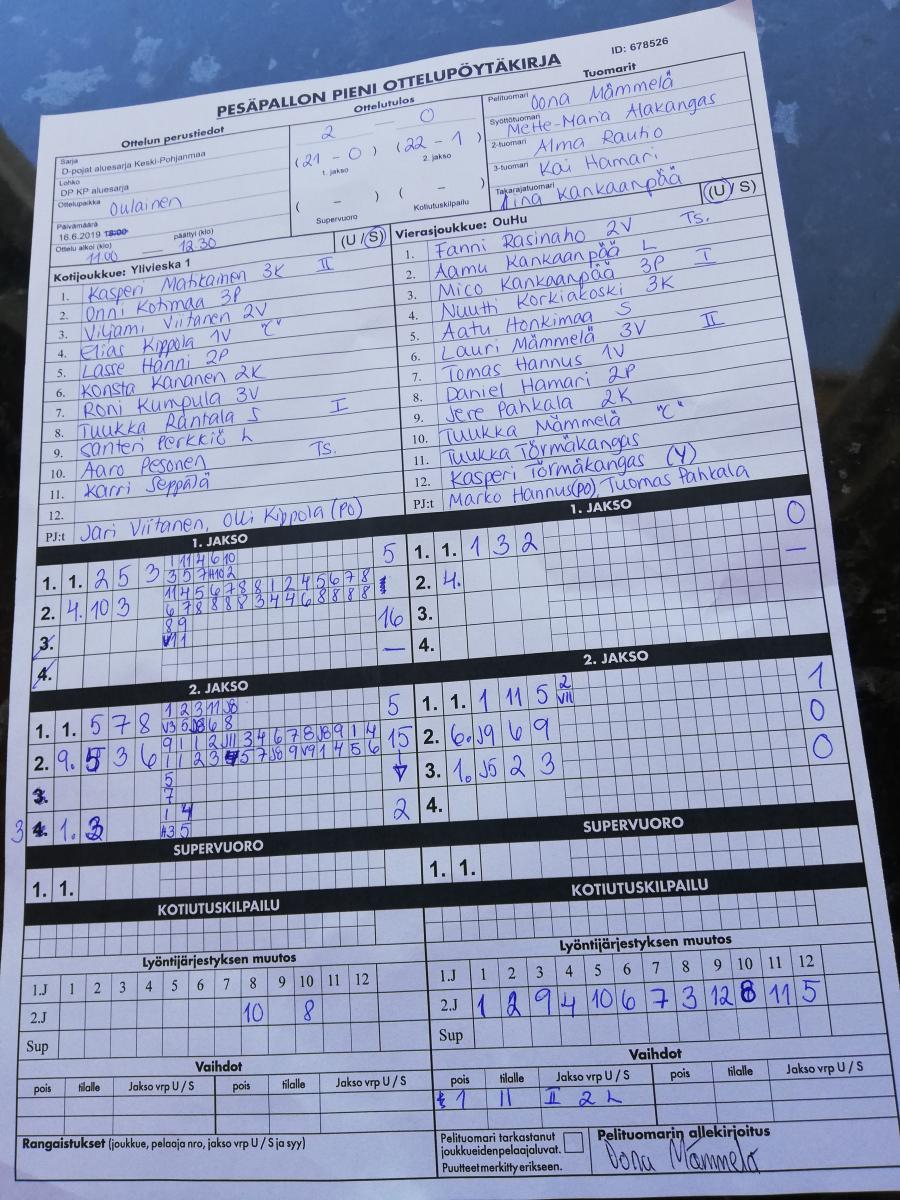 ID: 678526
PESÄPALLON PIENI OTTELUPÖYTÄKIRJA
Ottelun perustiedot
Sarja
D-pojat aluesarja Keski-Pohjanmaa
Lohko
DP KP aluesarja
Ottelupaikka Oulainen
Päivämäärä
16.6.2019 18:00 päättyi (klo)
Ottelu alkoi (klo) 11.00 12.30
Ottelutulos
2 — 0
(21 - 0) (22 - 1)
1. jakso 2. jakso
( - ) ( - )
Supervuoro Kotiutuskilpailu
Tuomarit
Pelituomari Oona Mämmelä
Syöttötuomari Mette-Maria Alakangas
2-tuomari Alma Rautio
3-tuomari Kai Hamari
Takarajatuomari Tiina Kankaanpää
Kotijoukkue: Ylivieska 1 (U / S)
1. Kasperi Matikainen 3K II
2. Onni Kotimaa 3P
3. Viljami Viitanen 2V
4. Elias Kippola 1V "C"
5. Lasse Hänni 2P
6. Konsta Kananen 2K
7. Roni Kumpula 3V
8. Tuukka Rantala S I
9. Santeri Perkkiö L
10. Aaro Pesonen Ts.
11. Karri Seppälä
12.
PJ:t Jari Viitanen, Olli Kippola (PO)
Vierasjoukkue: OuHu (U / S)
1. Fanni Rasinaho 2V Ts.
2. Aamu Kankaanpää L
3. Mico Kankaanpää 3P I
4. Nuutti Korkiakoski 3K
5. Aatu Honkimaa S
6. Lauri Mämmelä 3V II
7. Tomas Hannus 1V
8. Daniel Hamari 2P
9. Jere Pahkala 2K
10. Tuukka Mämmelä "C"
11. Tuukka Törmäkangas
12. Kasperi Törmäkangas (Y)
PJ:t Marko Hannus(PO), Tuomas Pahkala
1. JAKSO
1. 1. 2 5 3 5
2. 4. 10 3
3. 16
4. —
1. JAKSO
1. 1. 1 3 2 0
2. 4. —
3.
4.
2. JAKSO
1. 1. 5 7 8 5
2. 9. 5 3 6 15
3.
3 4. 1. 3 2
2. JAKSO
1. 1. 1 11 5 1
2. 6. J9 6 9 0
3. 1. J5 2 3 0
4.
SUPERVUORO
1. 1.
SUPERVUORO
1. 1.
KOTIUTUSKILPAILU
KOTIUTUSKILPAILU
Lyöntijärjestyksen muutos
1.J 1 2 3 4 5 6 7 8 9 10 11 12
2.J 10 8
Sup
Lyöntijärjestyksen muutos
1.J 1 2 3 4 5 6 7 8 9 10 11 12
2.J 1 2 9 4 10 6 7 3 12 8 11 5
Sup
Vaihdot
pois tilalle Jakso vrp U / S pois tilalle Jakso vrp U / S
Vaihdot
pois tilalle Jakso vrp U / S pois tilalle Jakso vrp U / S
1 11 II 2 L
Rangaistukset (joukkue, pelaaja nro, jakso vrp U / S ja syy)
Pelituomari tarkastanut
joukkueiden pelaajaluvat.
Puutteet merkitty erikseen.
Pelituomarin allekirjoitus
Oona Mämmelä